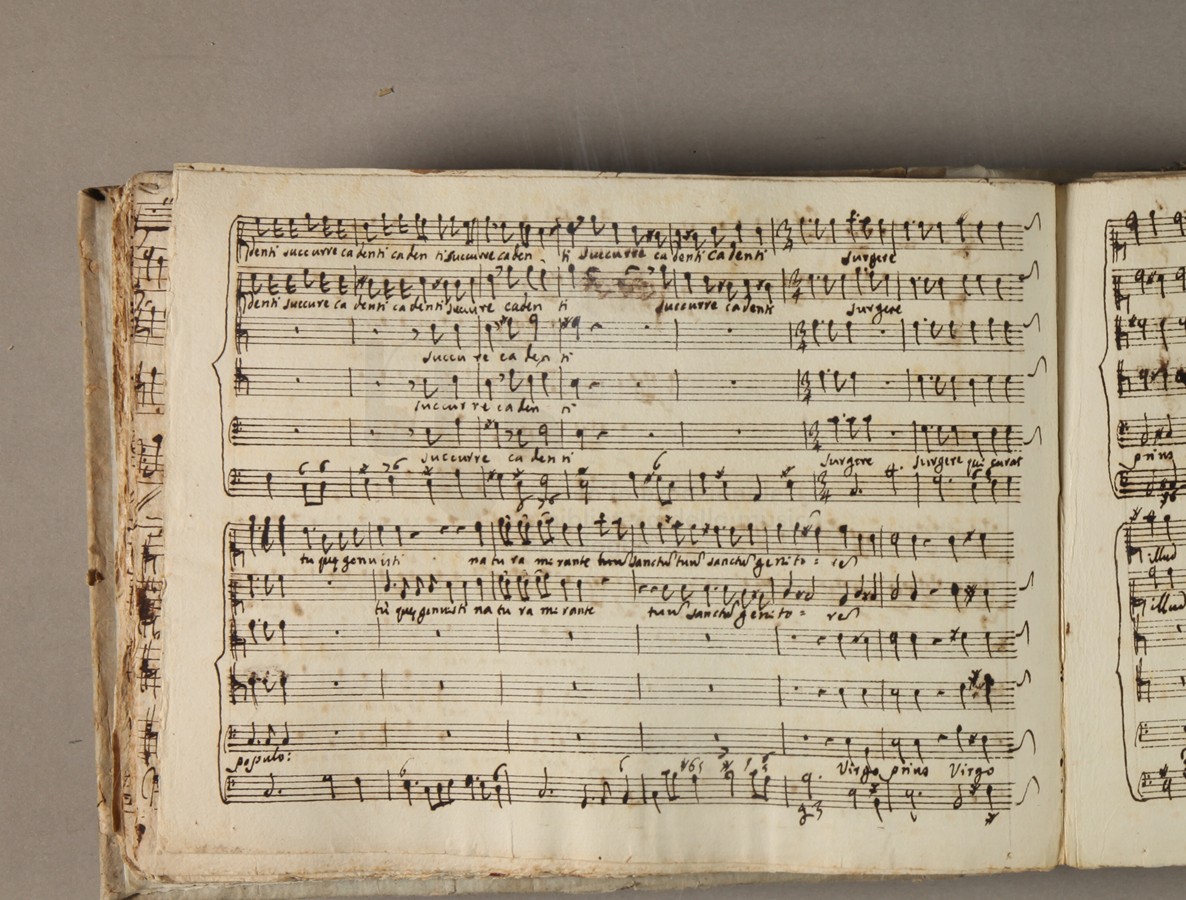 denti succurre cadenti caden ti succurre caden ti succurre cadenti cadenti surgere
denti succure ca denti cadenti succure caden ti succurre cadenti surgere
succu re ca den ti
succur re ca den ti
succurre ca den ti surgere surgere qui curat
6 6 76 6
tu quę genuisti na tu ra mi rante tuuʃ sanctuʃ tuuʃ sanctuʃ genito = reʃ
tu quę genuisti na tu ra mi rante tuuʃ sanctuʃ genito = reʃ
populo: Virgo prius Virgo
6 6 6
prius
illud
illud